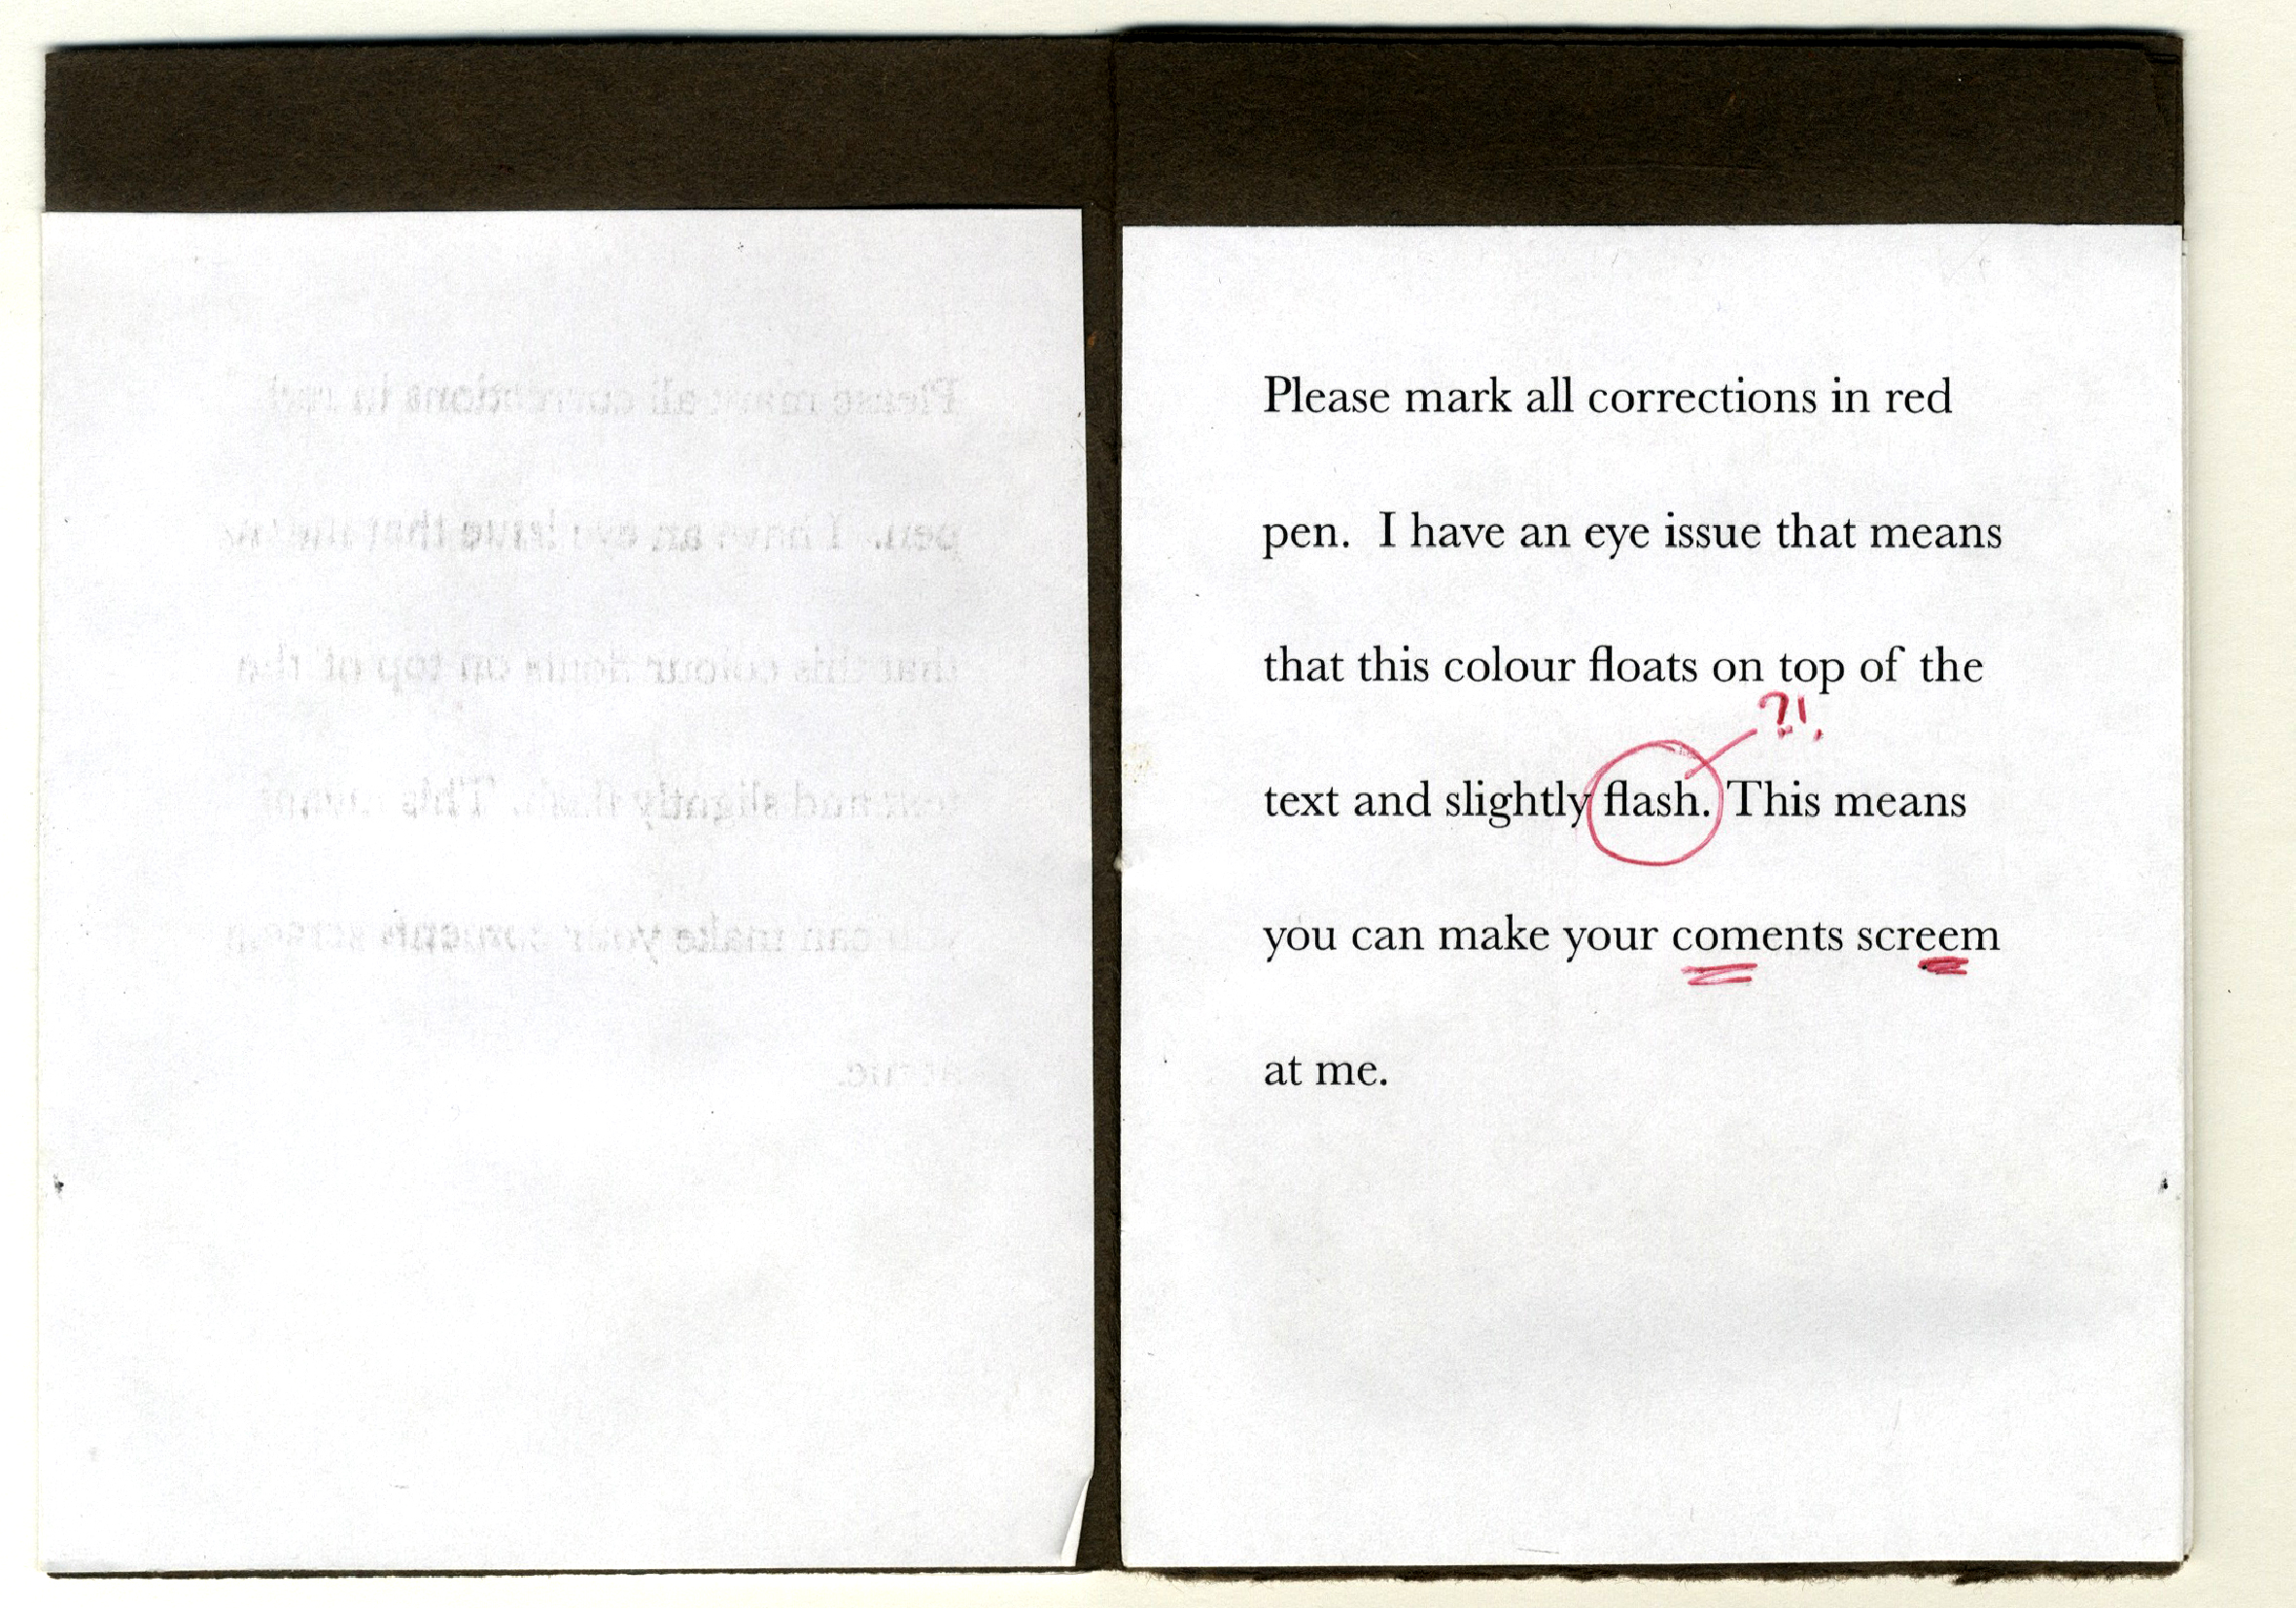 Please mark all corrections in red
pen.  I have an eye issue that means
that this colour floats on top of the
?!
text and slightly flash. This means
you can make your coments screem
at me.